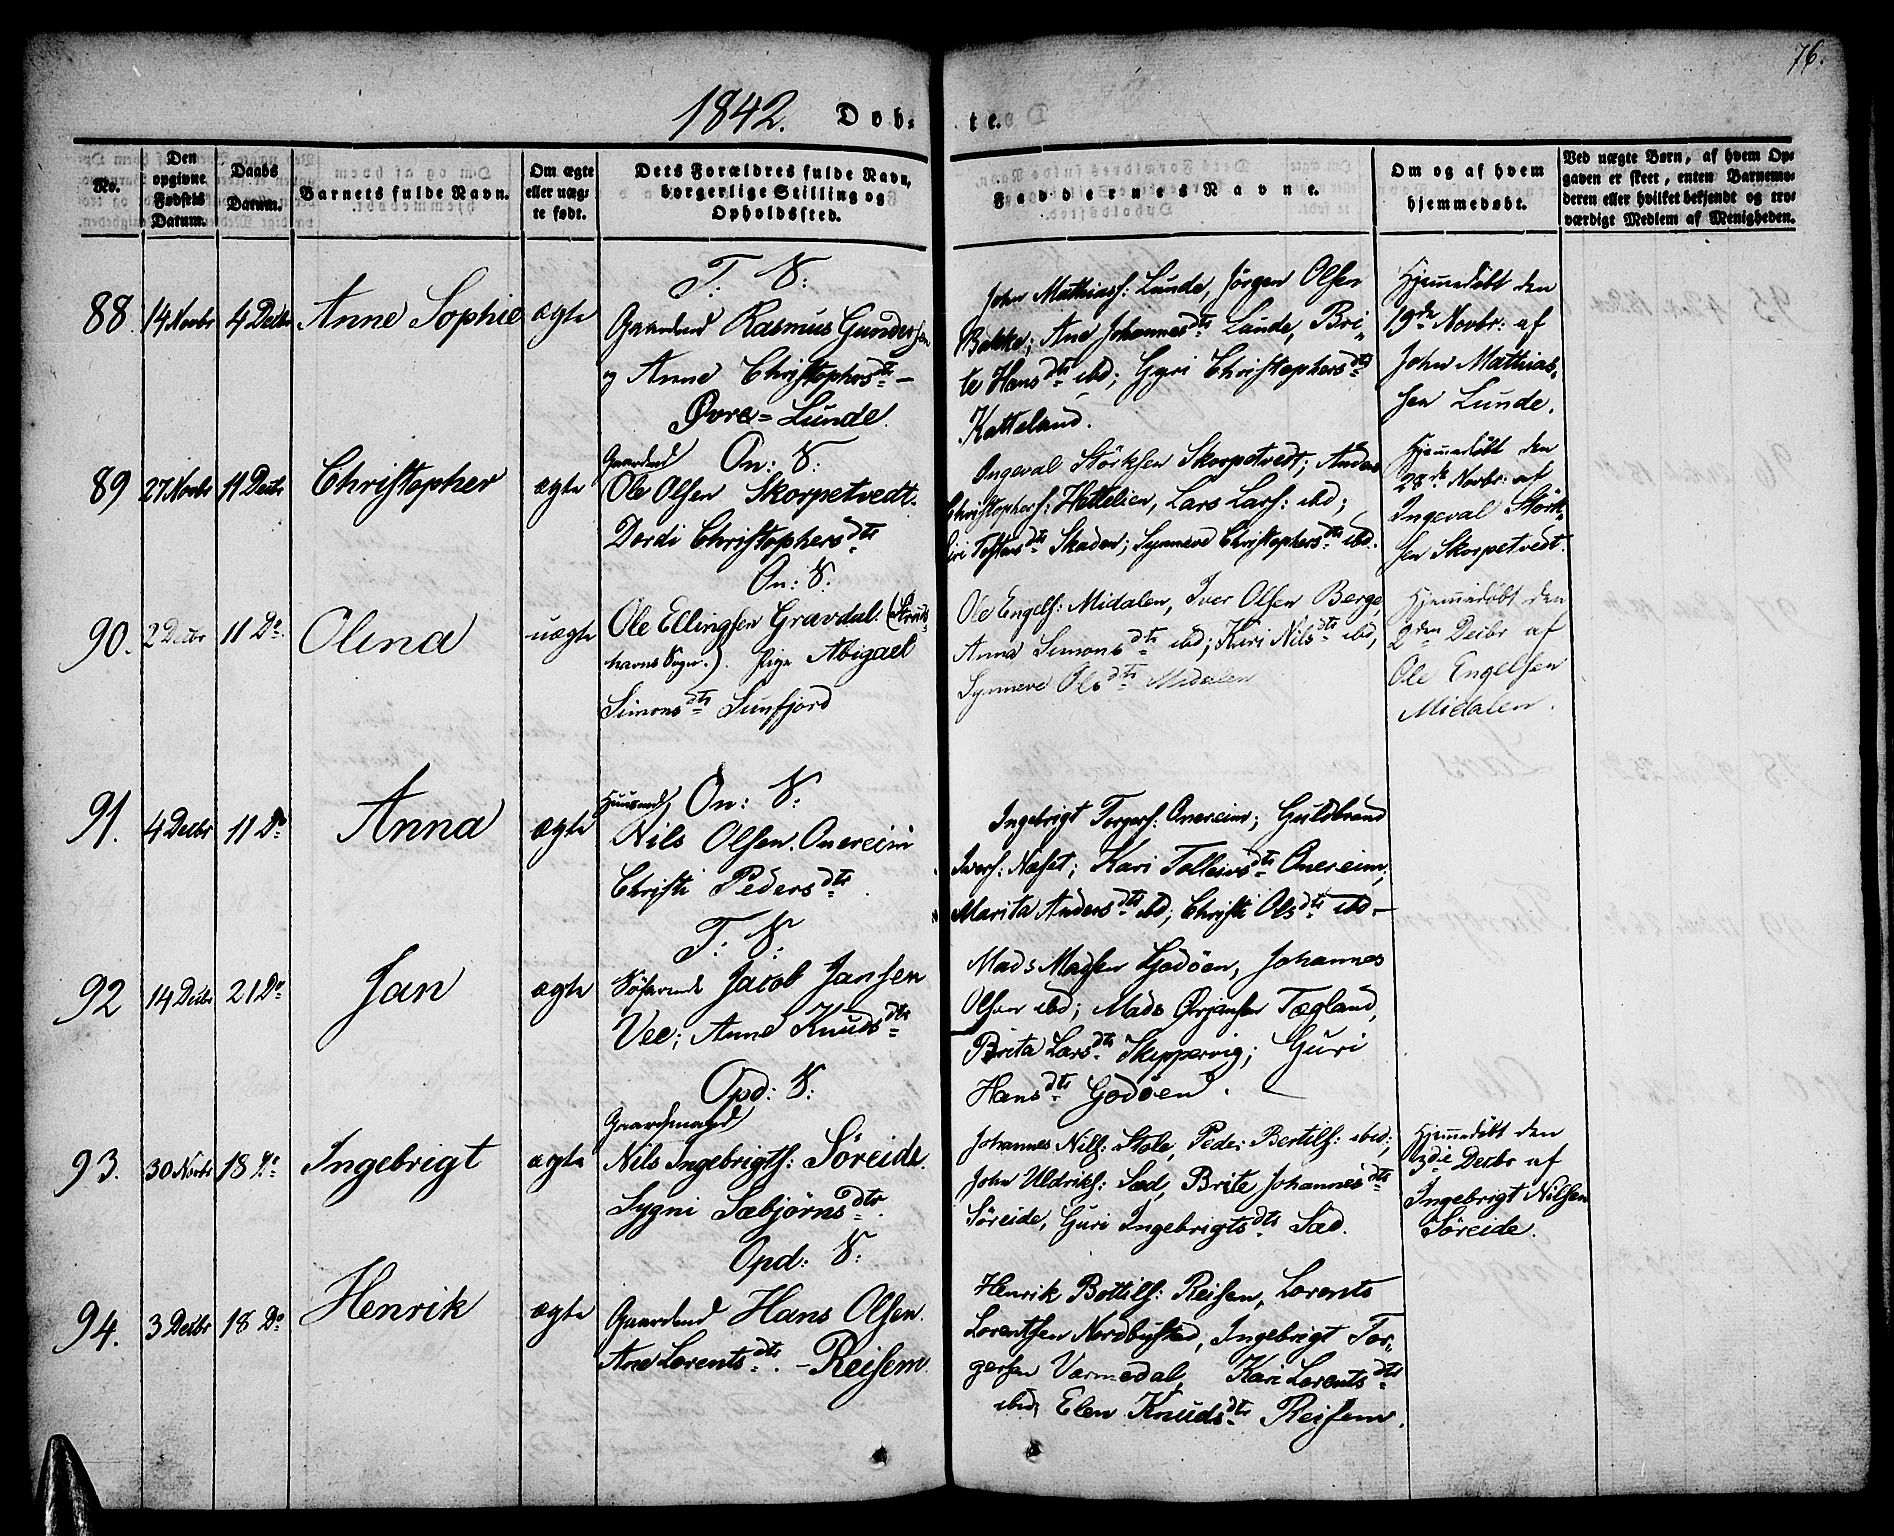 76.
1842. Døb- te.
No.
Den opgivne Fødsels Datum.
Daabs Datum.
Barnets fulde Navn.
Om ægte eller uægte født.
Dets Forældres fulde Navn, borgerlige Stilling og Opholdssted.
Faddernes Navne.
Om og af hvem hjemmedøbt.
Ved uægte Børn, af hvem Opgaven er skeet, enten Barnemoderen eller hvilket bekjendt og troværdigt Medlem af Menigheden.
T: S:
88. 14 Novbr 4 Decbr Anne Sophie ægte
Gaardmd Rasmus Gundersen
og Anne Christophersdtr -
Øvre = Lunde.
John Mathiass: Lunde, Jörgen Olsen
Bakke; Ane Johannesdtr Lunde, Bri-
te Hansdtr ibd; Gyri Christophersdtr
Katteland.
Hjemmedøbt den
19de Novbr: af
John Mathias-
sen Lunde.
On: S:
89 27 Novbr 11 Decbr Christopher ægte
Gaardmd
Ole Olsen Skorpetvedt.
Dordi Christophersdtr
Ingeval Störksen Skorpetvedt; Anders
Christophers: Hettelien, Lars Lars: ibd;
Siri Tostensdtr Skaden; Synneve Christophersdtr ibd.
Hjemmedøbt den
28de Novbr: af
Ingeval Störk-
sen Skorpetvedt.
On: S.
90. 2 Decbr 11 Do. Olina uægte
Ole Ellingsen Gravdal (Struds-
havns Sogn.). Pige Abigael
Simonsdtr Sunfjord
Ole Engels: Midalen, Iver Olsen Berge,
Anna Simonsdtr ibd; Kari Nilsdtr ibd,
Synneve Olsdtr Midalen
Hjemmedøbt den
2den Decbr af
Ole Engelsen
Midalen.
On: S:
91. 4 Decbr 11 Do Anna ægte
Huusmd
Nils Olsen. Onereim
Christi Pedersdtr.
Ingebrigt Torgers: Onereim; Guldbrand
Ivers: Næset; Kari Tolleivsdtr Onereim,
Marita Andersdtr ibd; Christi Olsdtr ibd -
T: S:
92 14 Decbr 21 Do Jan ægte
Søfarende Jacob Jansen
Vee; Anne Knudsdtr
Mads Madsen Godöen, Johannes
Olsen ibd; Mads Ørjansen Tægland,
Brita Larsdtr Skippervig; Guri
Hansdtr Godöen.
Opd: S:
93. 30 Novbr 18 Do Ingebrigt ægte
Gaardmand
Nils Ingebrigts: Söreide.
Sygni Sæbjörnsdtr.
Johannes Nils: Stole, Peder Bertils: ibid;
John Uldriks: Sæd, Brite Johannesdtr
Söreide, Guri Ingebrigtsdtr Sæd.
Hjemmedøbt den
3die Decbr af
Ingebrigt Nilsen
Söreide.
Opd: S:
94. 3 Decbr 18 Do Henrik ægte
Gaardmd Hans Olsen.
Ane Lorentsdtr. - Reisem.
Henrik Bottils: Reisen, Lorents
Lorentsen Nordbustad, Ingebrigt Tor-
gersen Varmedal, Kari Lorentsdtr
ibd, Elen Knudsdtr Reisem.